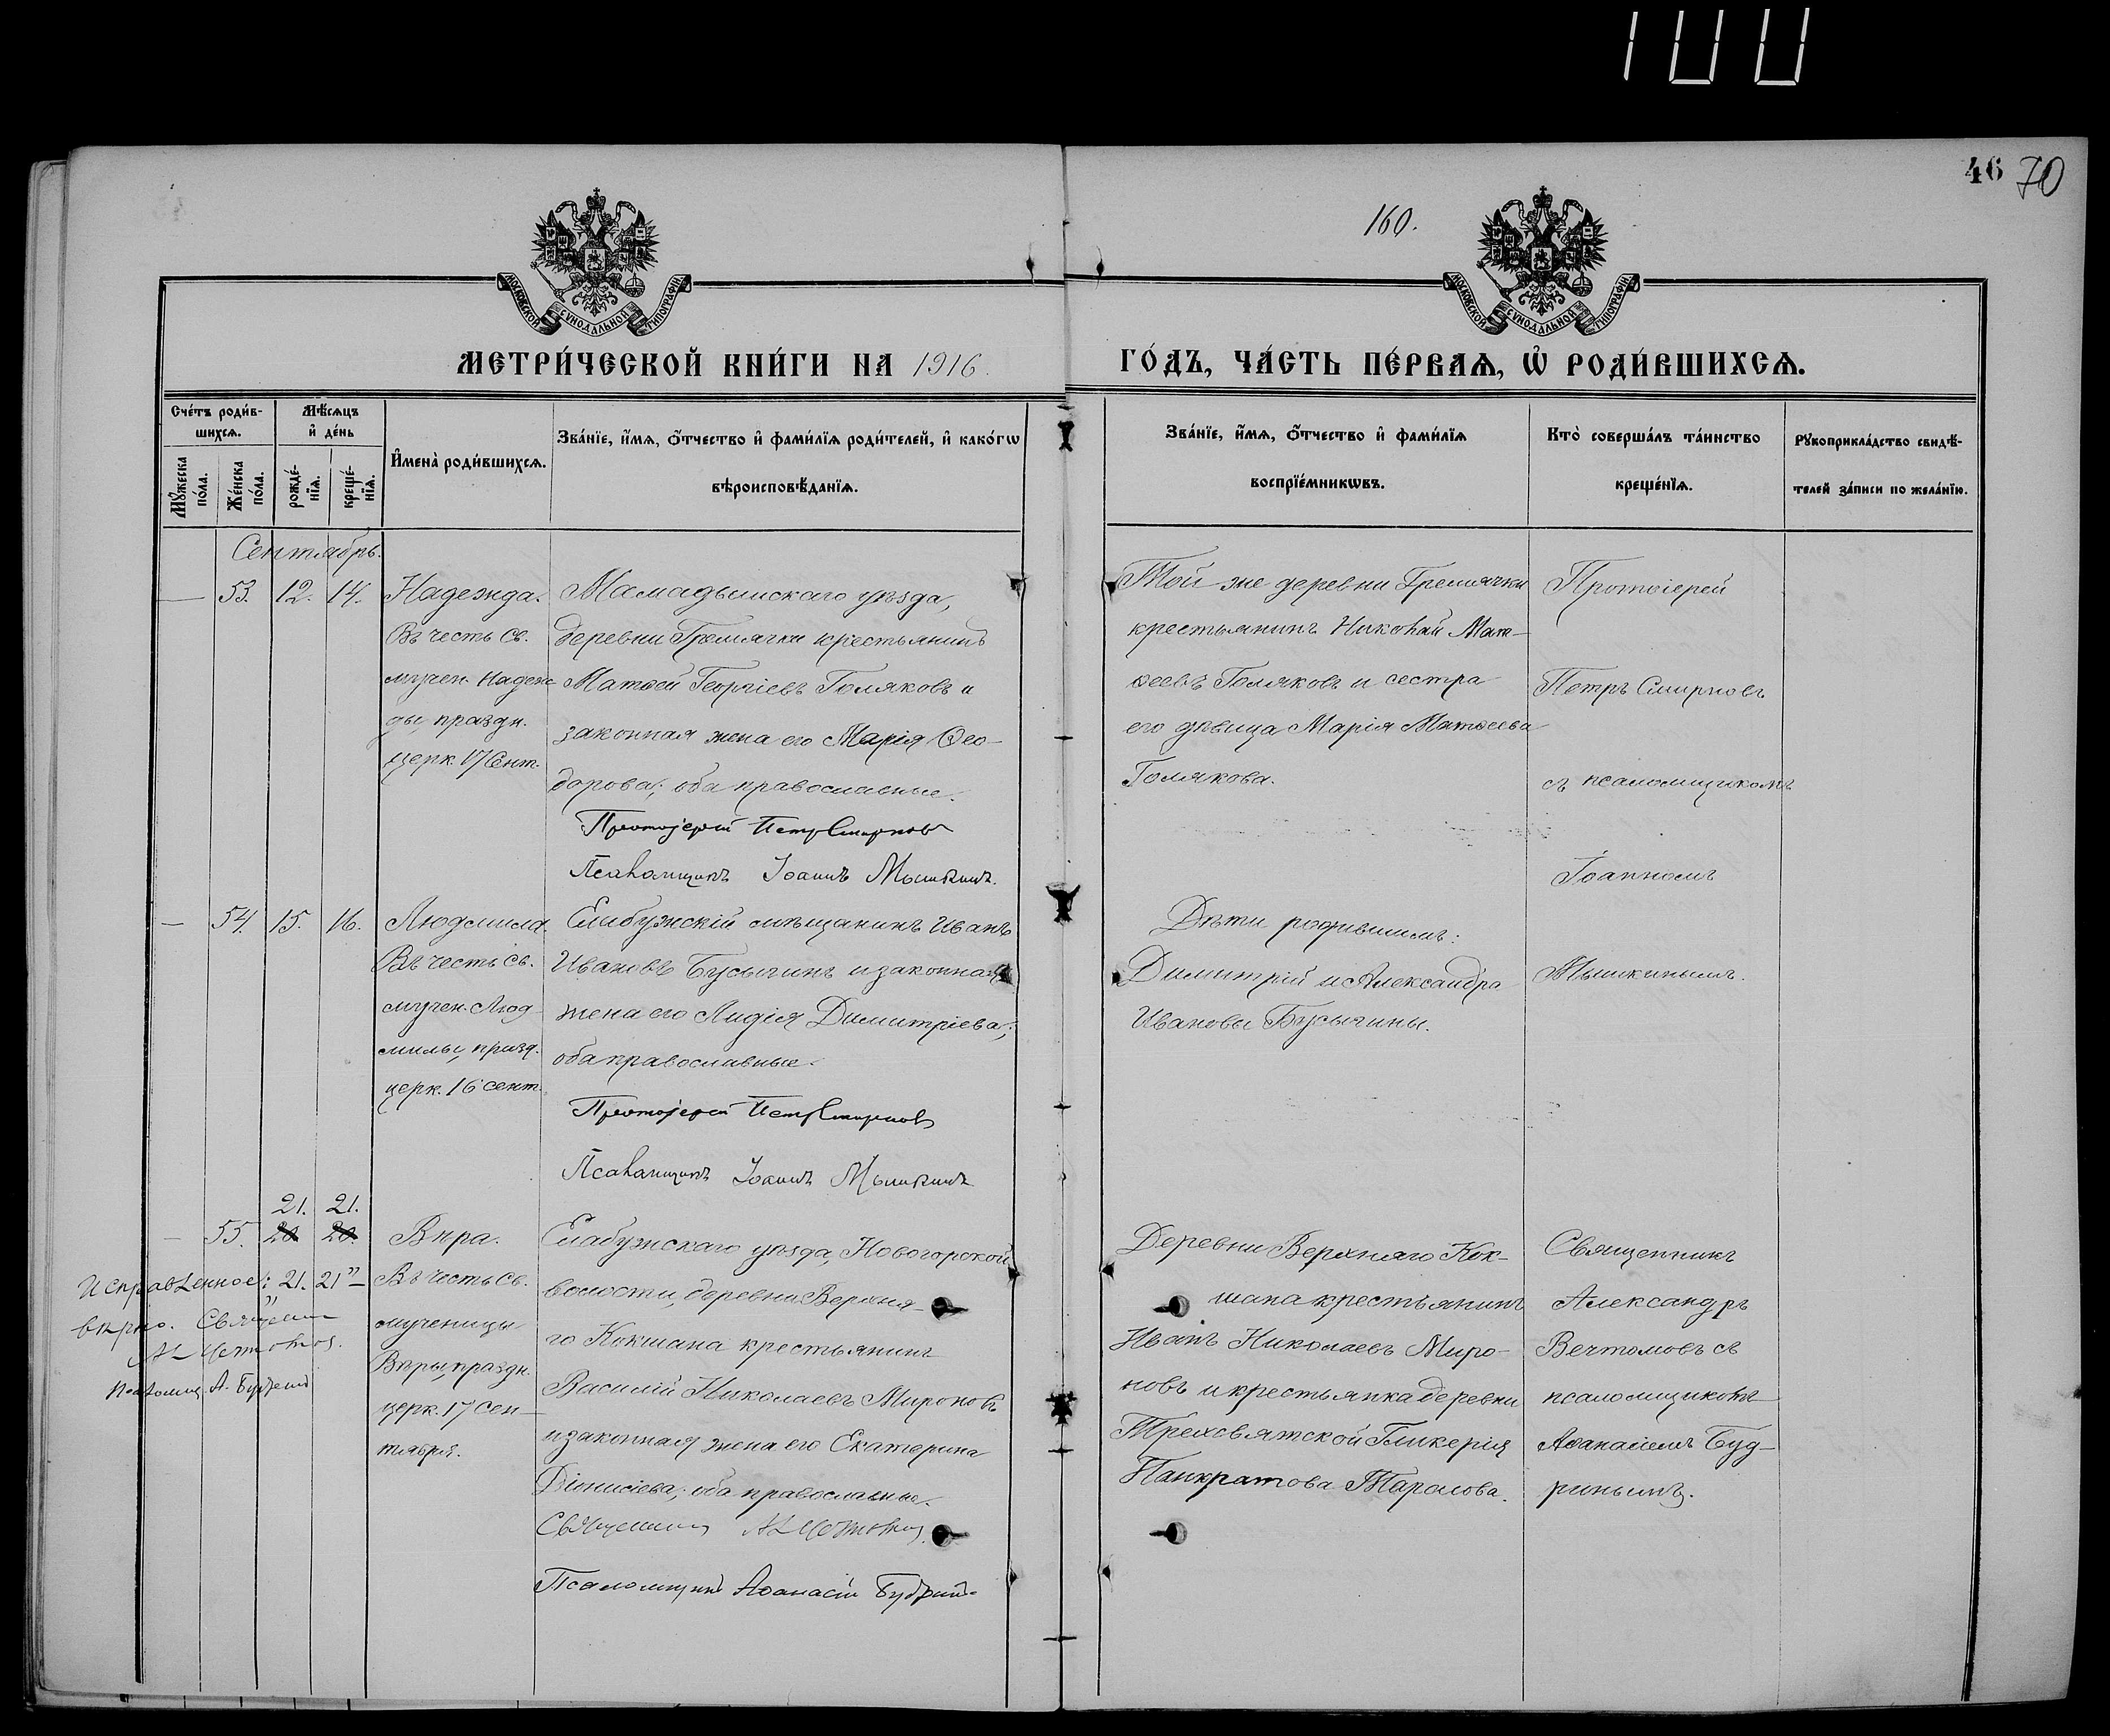 100
46 70
160.
МОСКОВСКОЙ СѴНОДАЛЬНОЙ ТИПОГРАФІИ
МОСКОВСКОЙ СѴНОДАЛЬНОЙ ТИПОГРАФІИ
МЕТРИ́ЧЕСКОЙ КНИ́ГИ НА 1916.
ГО́ДЪ, ЧА́СТЬ ПЕ́РВАѦ, Ѽ РОДИ́ВШИХСѦ.
Сче́тъ роди́в-
шихсѧ.
Мꙋ́жеска по́ла.
Же́нска по́ла.
Мѣ́сѧцъ
и҆ де́нь
рожде́-
нїѧ.
креще́-
нїѧ.
И҆мена̀ роди́вшихсѧ.
Зва́нїе, и҆́мѧ, ѻ҆́тчество и҆ фами́лїѧ роди́телей, и҆ како́гѡ
вѣроисповѣ́данїѧ.
Зва́нїе, и҆́мѧ, ѻ҆́тчество и҆ фами́лїѧ
воспрїе́мникѡвъ.
Кто̀ соверша́лъ та́инство
креще́нїѧ.
Рꙋкоприкла́дство свидѣ́-
телей за́писи по жела́нїю.
Сентябрь.
— 53. 12. 14.
Надежда.
Въ честь св.
мучен. Надеж
ды, праздн.
церк. 17 Сент.
Мамадышскаго уѣзда,
деревни Гремячки крестьянинъ
Матѳей Георгіевъ Голяковъ и
законная жена его Марія Ѳео-
дорова; оба православные.
Протоіерей Петръ Смирновъ
Псаломщикъ Іоаннъ Мышкинъ.
Той же деревни Гремячки
крестьянинъ Николай Мат-
ѳеевъ Голяковъ и сестра
его дѣвица Марія Матѳеева
Голякова.
Протоіерей
Петръ Смирновъ
съ псаломщикомъ
Іоанномъ
Мышкинымъ.
— 54. 15. 16.
Людмила.
Въ честь св.
мучен. Люд-
милы, празд.
церк. 16 сент.
Елабужскій мѣщанинъ Иванъ
Ивановъ Бусыгинъ и законная
жена его Лидія Димитріева;
оба православные.
Протоіерей Петръ Смирновъ
Псаломщикъ Іоаннъ Мышкинъ
Дѣти родившимъ:
Димитрій и Александра
Ивановы Бусыгины.
21. 21.
— 55. 20. 20.
Исправленное: "21. 21" —
вѣрно. Священ
Псаломщ. А. Будринъ
Вѣра.
Въ честь св.
мученицы
Вѣры, праздн.
церк. 17 сен-
тября.
Елабужскаго уѣзда, Новогорской
волости, деревни Верхня-
го Кокшана крестьянинъ
Василій Николаевъ Мироновъ
и законная жена его Екатерина
Діонисіева; оба православные.
Священникъ
Псаломщикъ Аѳанасій Будринъ
Деревни Верхняго Кок-
шана крестьянинъ
Иванъ Николаевъ Миро-
новъ и крестьянка деревни
Трехсвятской Гликерія
Панкратова Тарасова.
Священникъ
Александръ
Вечтомовъ съ
псаломщикомъ
Аѳанасіемъ Буд-
ринымъ.